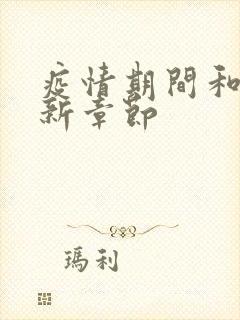 疫情期間和
新章節
瑪利